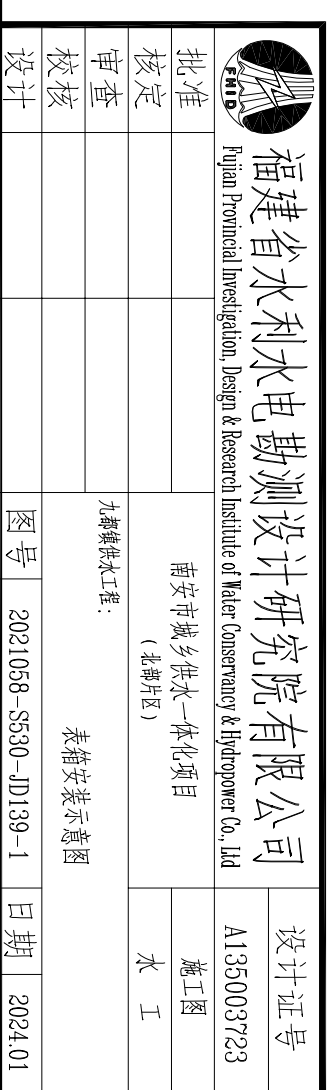 FHID
福建省水利水电勘测设计研究院有限公司
Fujian Provincial Investigation, Design & Research Institute of Water Conservancy & Hydropower Co., Ltd
设计证号
A135003723
批准
核定
审查
校核
设计
南安市城乡供水一体化项目
(北部片区)
施工图
水 工
九都镇供水工程:
表箱安装示意图
图号
2021058-S530-JD139-1
日期
2024.01